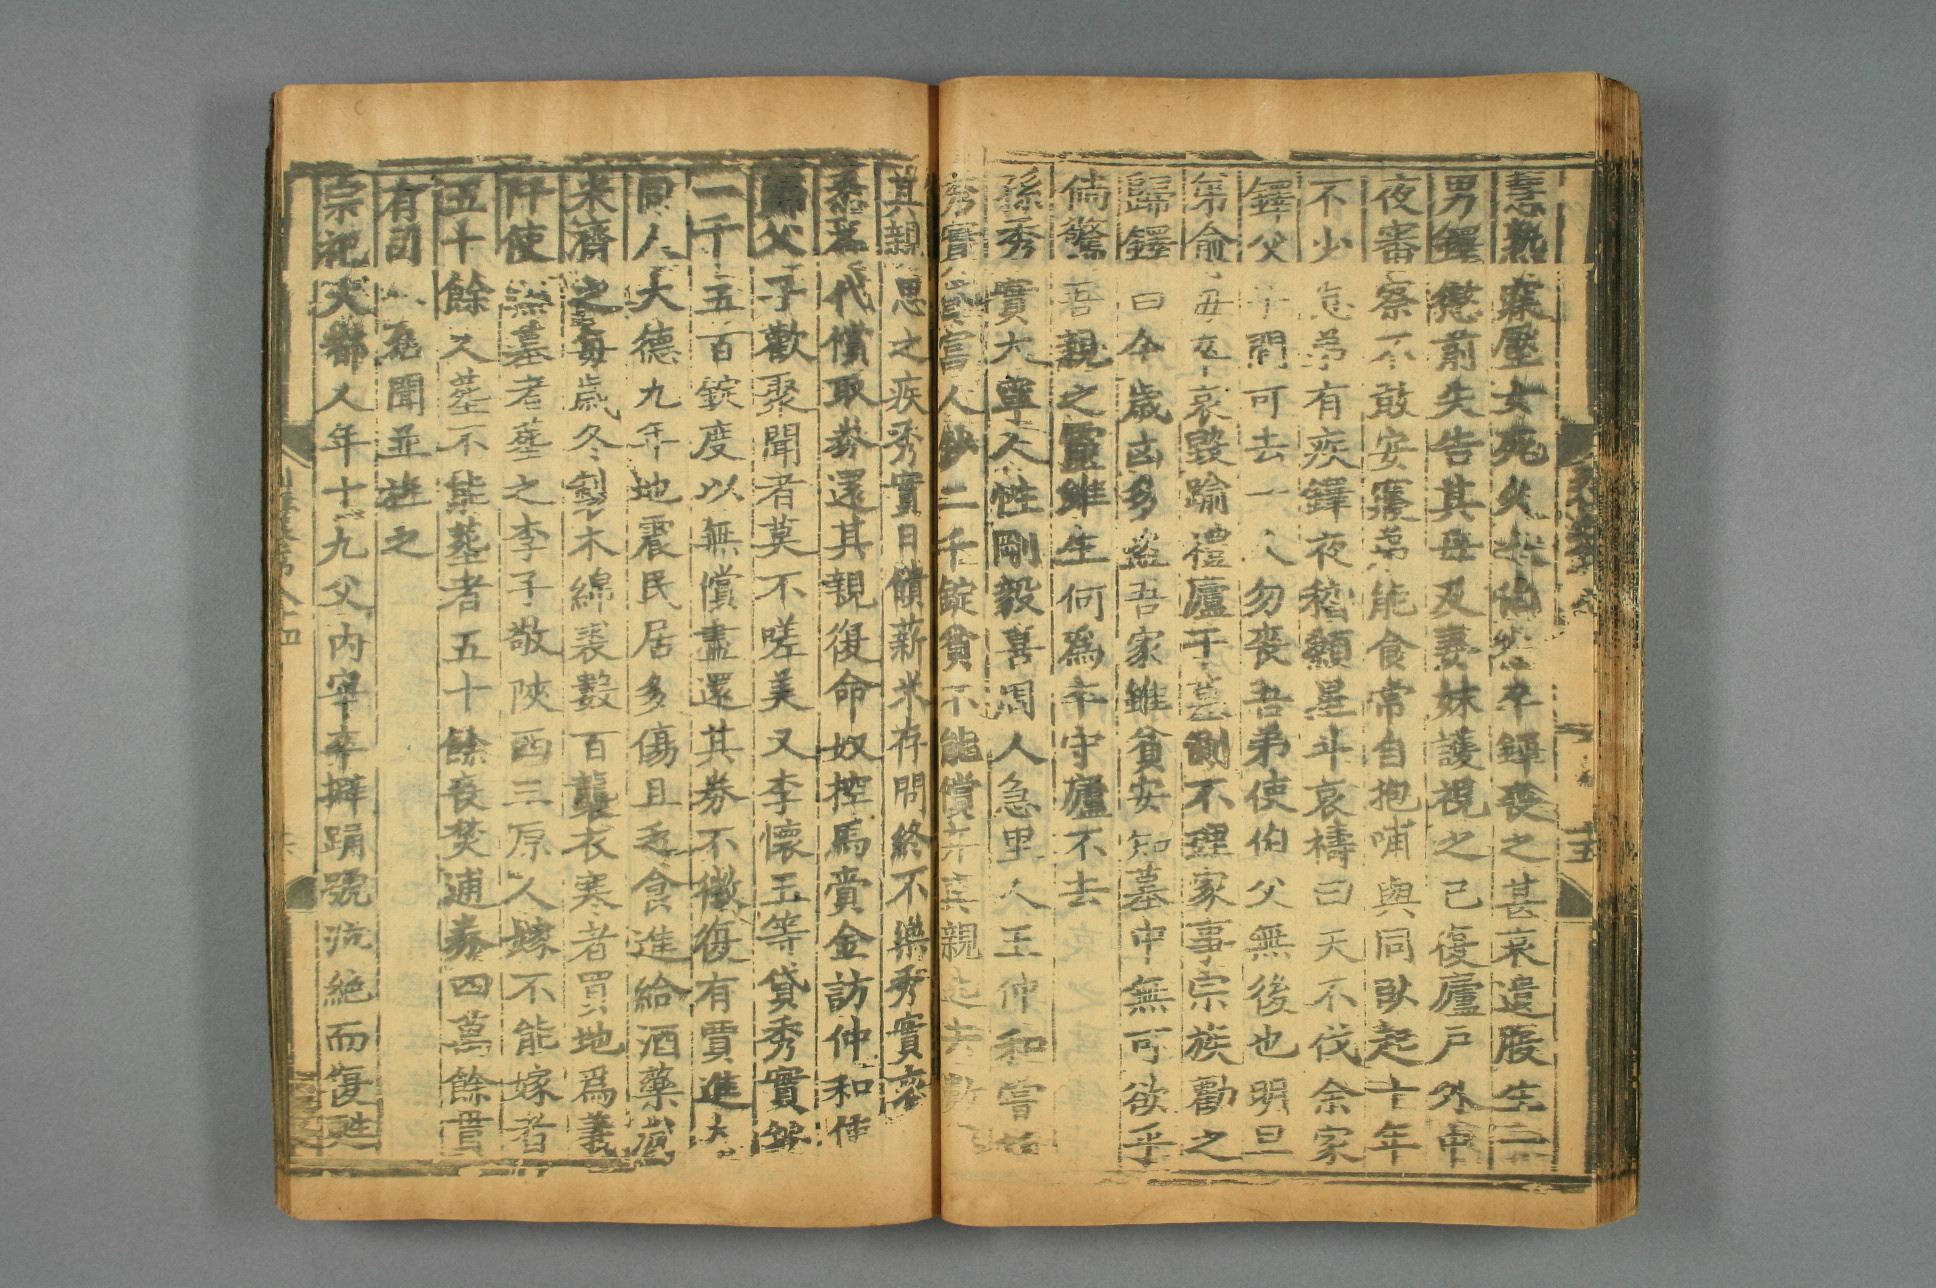 熟寐壓女死火 卒鐸喪之甚哀遺腹生二
男鐸懲前失告其母及妻妹護視之己復廬戶外中
夜審察不敢安寢弟能食常自抱哺與同臥起十年
不少怠弟有疾鐸夜稽顙星斗哀禱曰天不伐余家
鐸父子間可去一人勿喪吾弟使伯父無後也明旦
弟俞母卒哀毀踰禮廬于墓側不理家事宗族勸之
歸鐸曰今歲凶多盜吾家雖貧安知墓中無可欲乎
倘驚吾親之靈雖生何爲卒守廬不去
孫秀實大寧人性剛毅喜周人急里人王仲和嘗
秀實貸富人鈔二千錠貧不能償棄其親逃去數
其親思之疾秀實日饋薪米存問終不樂秀實
悉爲代償取券還其親復命奴控馬賫金訪仲和使
父子歡聚聞者莫不嗟美又李懷玉等貸秀實鈔
一千五百錠度以無償盡還其券不徵復有賈進大
同人大德九年地震民居多傷且乏食進給酒藥
米濟之每歲冬製木綿裘數百襲衣寒者買地爲義
阡使無墓者葬之李子敬陝西三原人嫁不能嫁者
五十餘人葬不能葬者五十餘喪焚逋券四萬餘貫
有司以名聞並旌之
宗祀大都人年十九父內宰卒擗踊號泣絕而復甦